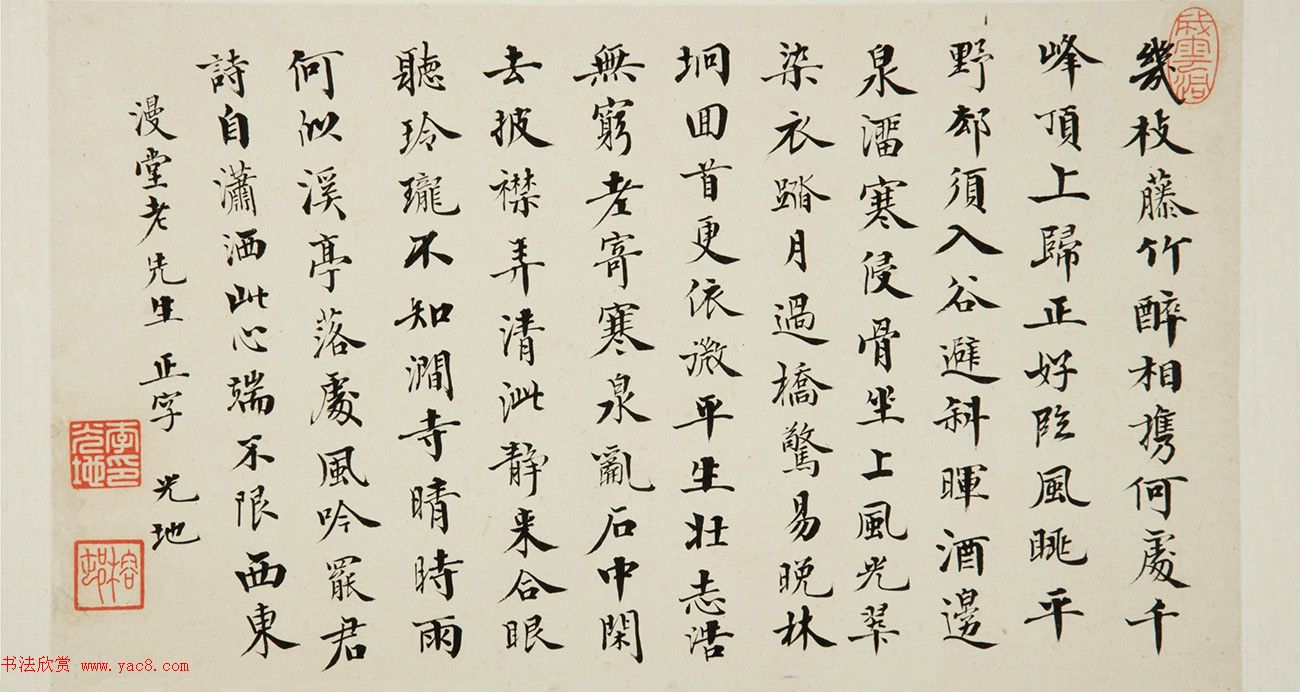 幾枝藤竹醉相携何處千
峰頂上歸正好臨風眺平
野却須入谷避斜暉酒邊
泉溜寒侵骨坐上風光翠
染衣踏月過橋驚易晚林
坰回首更依微平生壯志浩
無窮老寄寒泉亂石中閑
去披襟弄清泚静来合眼
聽玲瓏不知澗寺晴時雨
何似溪亭落處風吟罷君
詩自瀟洒此心端不限西東
漫堂老先生 正字 光地
李印光地
书法欣赏 www.yac8.com